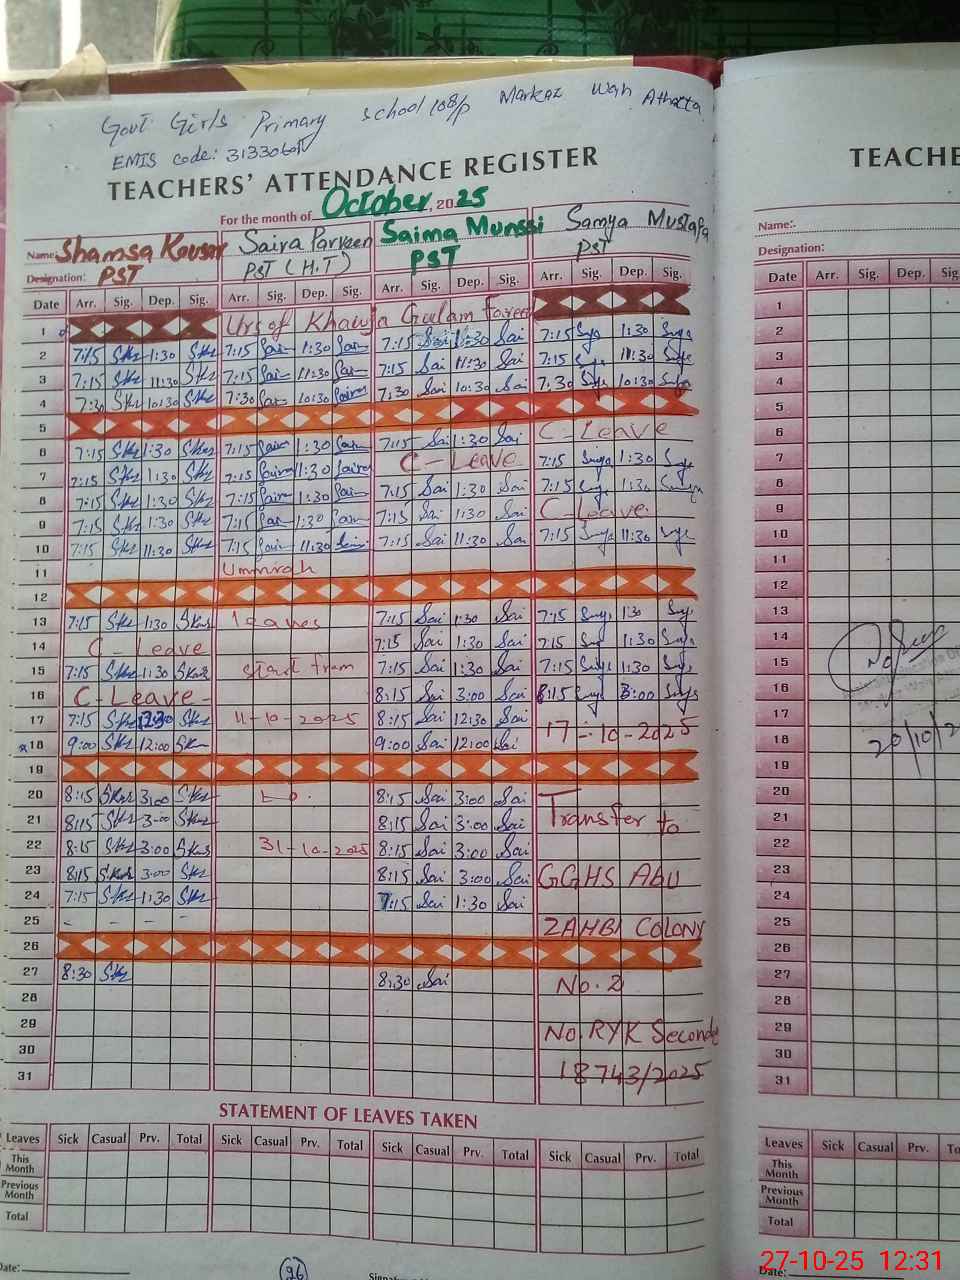 Govt Girls Primary School 108/P Markaz Wah Athatta
EMIS code:
TEACHERS' ATTENDANCE REGISTER
For the month of October, 2025
Name: Shamsa Kousar Saira Parveen Saima Munssi Samya Mustafa
Designation: PST PST (H.T) PST PST
Date Arr. Sig. Dep. Sig. Arr. Sig. Dep. Sig. Arr. Sig. Dep. Sig. Arr. Sig. Dep. Sig.
1 Urs of Khawja Gulam Fareed
2 7:15 1:30 7:15 1:30 7:15 Sai 1:30 Sai 7:15 1:30
3 7:15 11:30 7:15 11:30 7:15 Sai 11:30 Sai 7:15 11:30
4 7:30 10:30 7:30 10:30 7:30 Sai 10:30 Sai 7:30 10:30
5
6 7:15 1:30 7:15 1:30 7:15 Sai 1:30 Sai C-Leave
7 7:15 1:30 7:15 1:30 C-Leave 7:15 1:30
8 7:15 1:30 7:15 1:30 7:15 Sai 1:30 Sai 7:15 1:30
9 7:15 1:30 7:15 1:30 7:15 Sai 1:30 Sai C-Leave
10 7:15 11:30 7:15 11:30 7:15 Sai 11:30 Sai 7:15 11:30
11 Ummrah
12
13 7:15 1:30 leaves 7:15 Sai 1:30 Sai 7:15 1:30
14 C-Leave 7:15 Sai 1:30 Sai 7:15 1:30
15 7:15 1:30 start from 7:15 Sai 1:30 Sai 7:15 1:30
16 C-Leave 8:15 Sai 3:00 Sai 8:15 3:00
17 7:15 12:30 11-10-2025 8:15 Sai 12:30 Sai 17-10-2025
18 9:00 12:00 9:00 Sai 12:00 Sai
19
20 8:15 3:00 to 8:15 Sai 3:00 Sai
21 8:15 3:00 8:15 Sai 3:00 Sai Transfer to
22 8:15 3:00 31-10-2025 8:15 Sai 3:00 Sai
23 8:15 3:00 8:15 Sai 3:00 Sai GGHS Abu
24 7:15 1:30 7:15 Sai 1:30 Sai
25 - - - - ZAHBI COLONY
26
27 8:30 8:30 Sai No. 2
28
29 No. RYK Seconde
30
31 18743/2025
STATEMENT OF LEAVES TAKEN
Leaves Sick Casual Prv. Total Sick Casual Prv. Total Sick Casual Prv. Total Sick Casual Prv. Total
This Month
Previous Month
Total
Date:
26
TEACHE
Name:
Designation:
Date Arr. Sig. Dep. Sig
1
2
3
4
5
6
7
8
9
10
11
12
13
14
15
16
17
18 20/10/2
19
20
21
22
23
24
25
26
27
28
29
30
31
Leaves Sick Casual Prv. To
This Month
Previous Month
Total
Date:
27-10-25 12:31